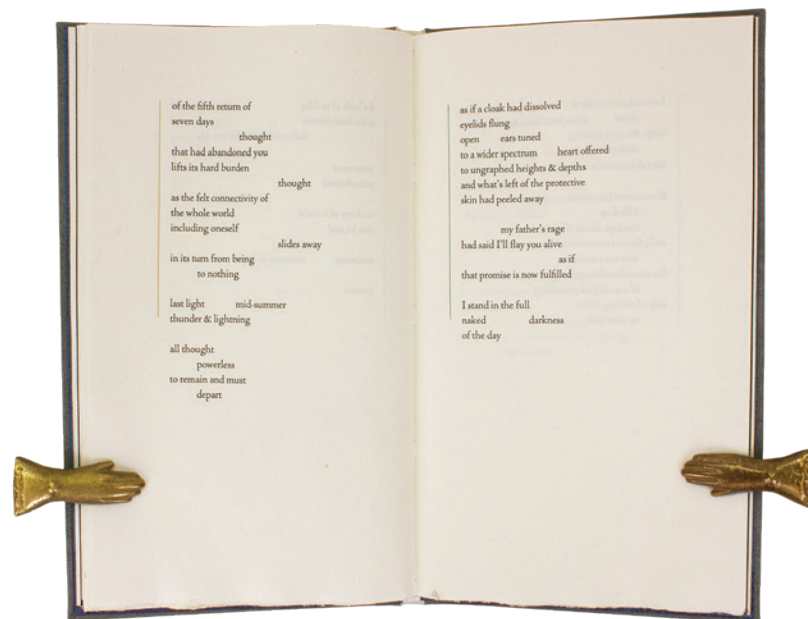 of the fifth return of
seven days
thought
that had abandoned you
lifts its hard burden
thought
as the felt connectivity of
the whole world
including oneself
slides away
in its turn from being
to nothing
last light mid-summer
thunder & lightning
all thought
powerless
to remain and must
depart
as if a cloak had dissolved
eyelids flung
open ears tuned
to a wider spectrum heart offered
to ungraphed heights & depths
and what's left of the protective
skin had peeled away
my father's rage
had said I'll flay you alive
as if
that promise is now fulfilled
I stand in the full
naked darkness
of the day